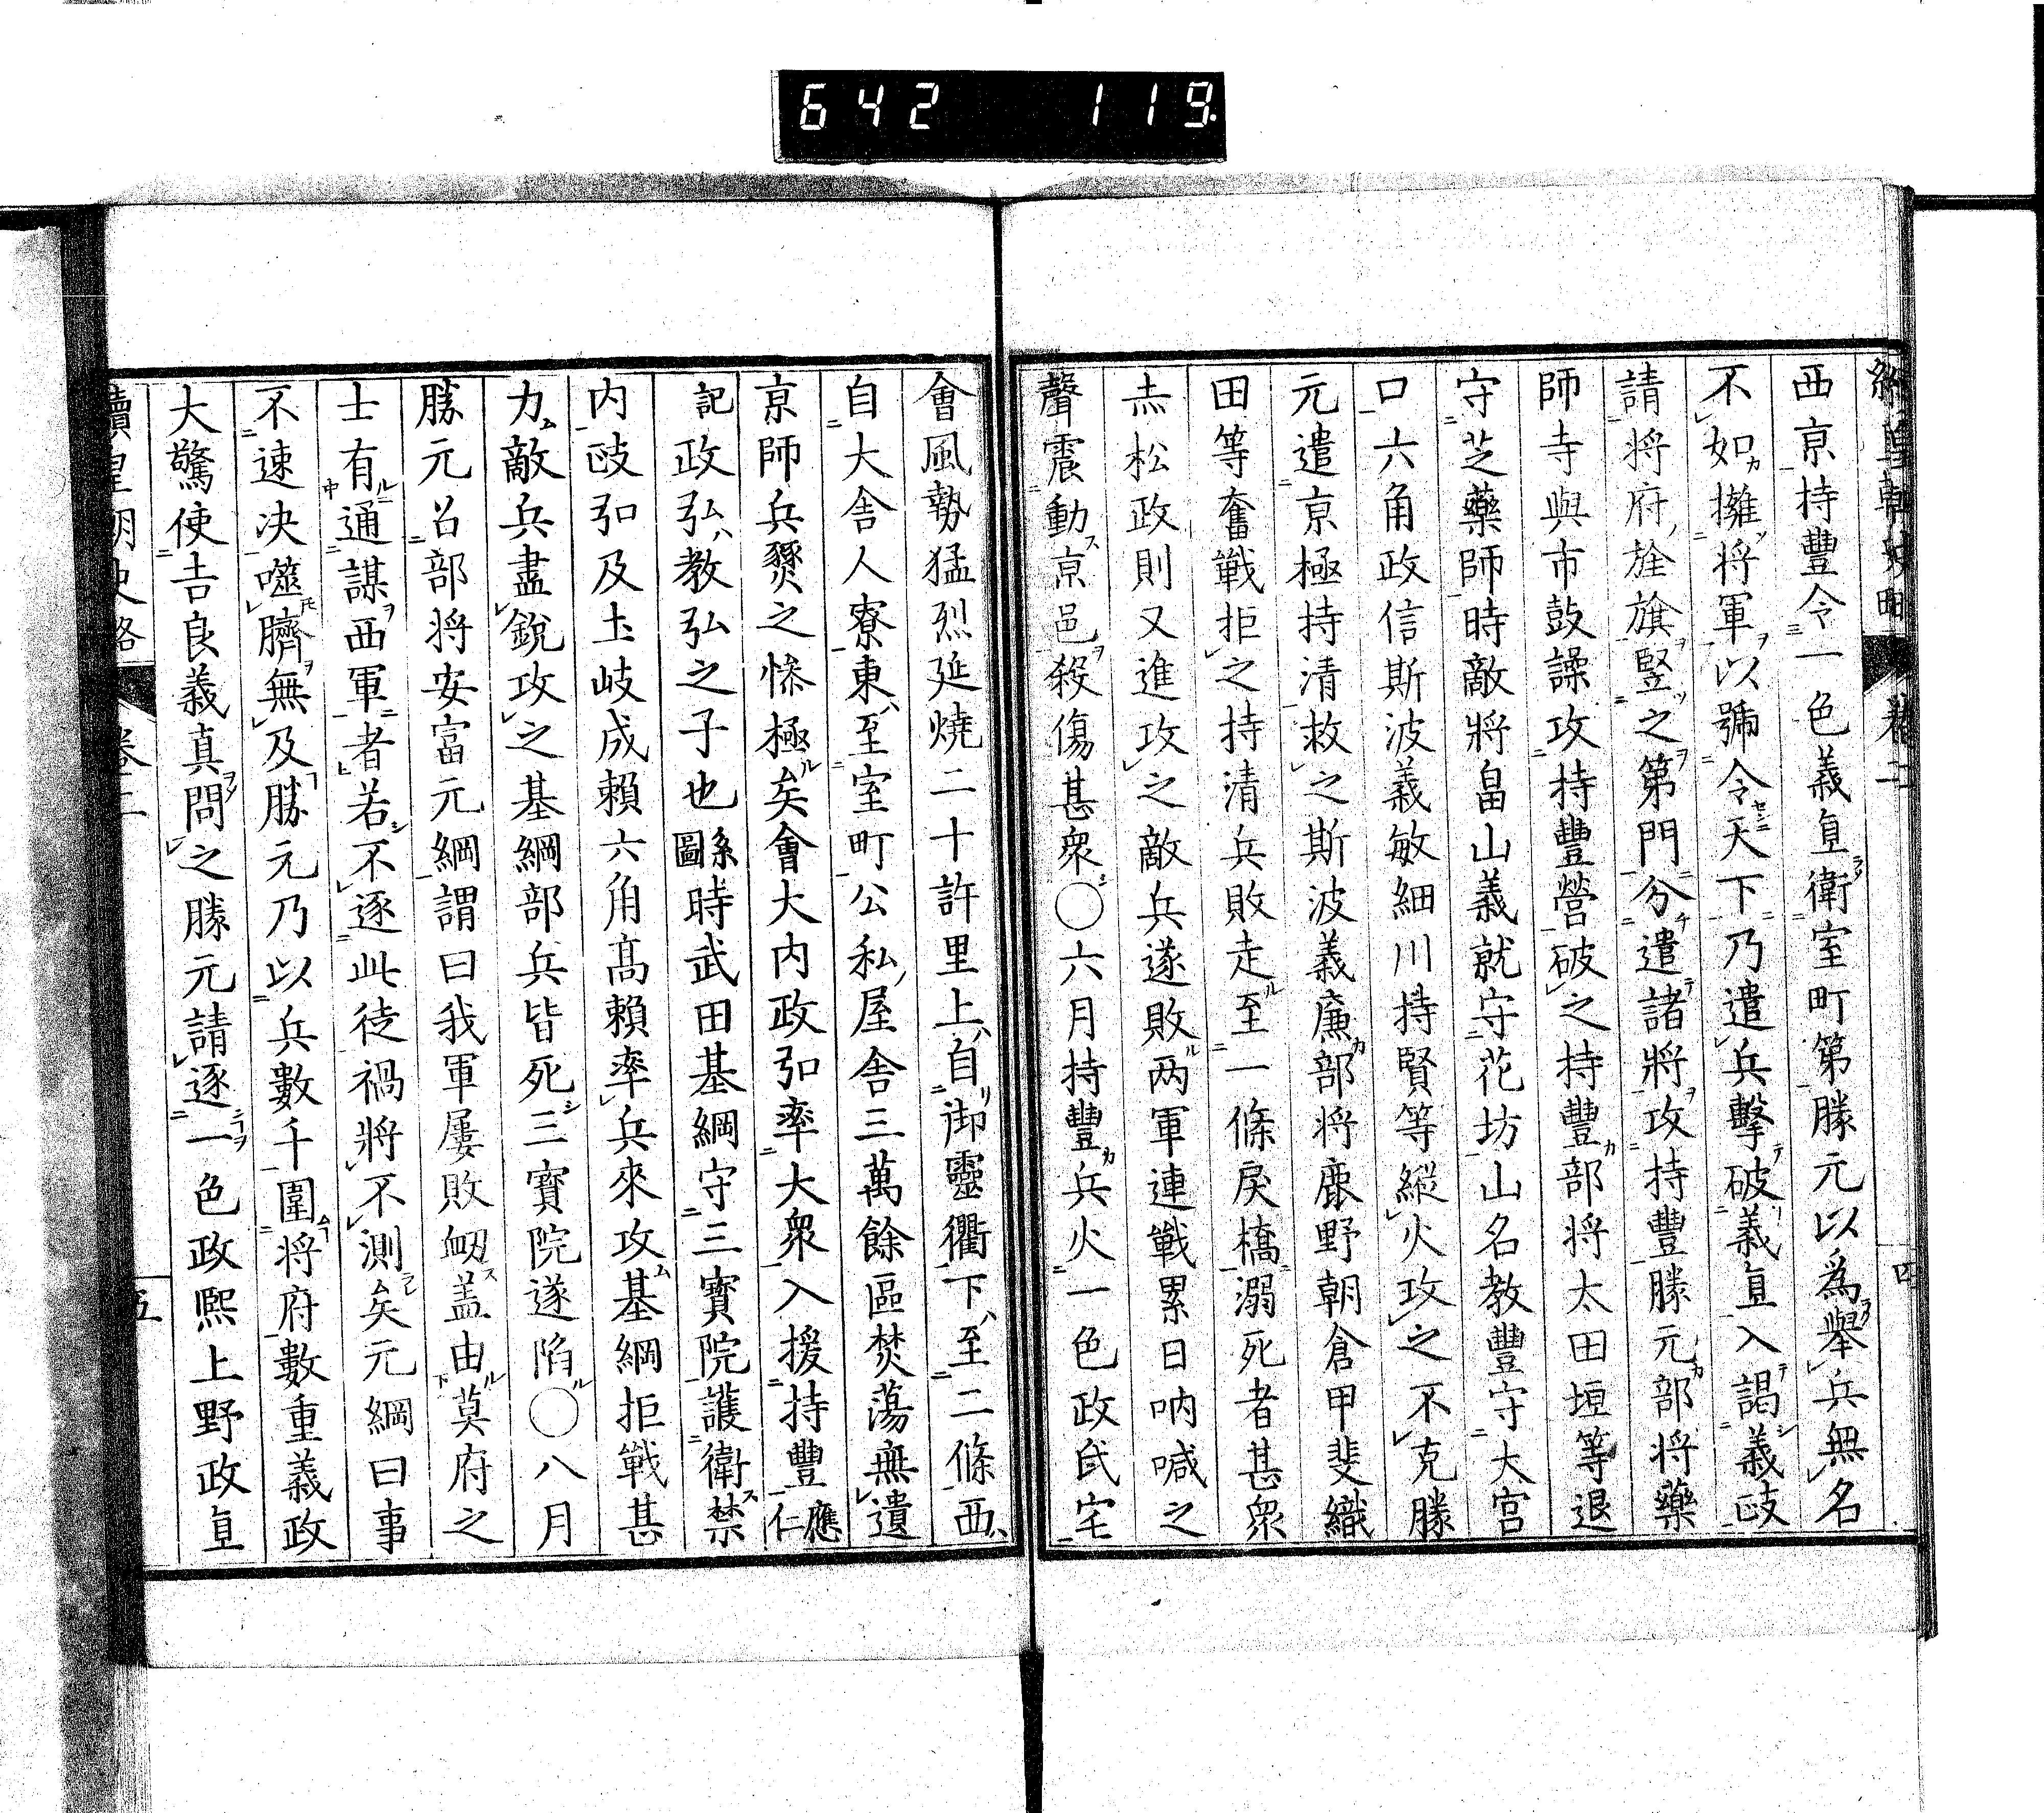 642 119.
續皇朝史略 卷二 四
西京持豐令一色義直衛室町第勝元以爲舉兵無名
不如擁将軍以號令天下乃遣兵擊破義直入謁義政
請将府旌旗竪之第門分遣諸將攻持豐勝元部将藥
師寺與市鼓譟攻持豐營破之持豐部将太田垣等退
守芝藥師時敵將畠山義就守花坊山名教豐守大宮
口六角政信斯波義敏細川持賢等縦火攻之不克勝
元遣京極持清救之斯波義廉部将鹿野朝倉甲斐織
田等奮戰拒之持清兵敗走至一條戻橋溺死者甚衆
赤松政則又進攻之敵兵遂敗两軍連戰累日吶喊之
聲震動京邑殺傷甚衆〇六月持豐兵火一色政氏宅
會風勢猛烈延燒二十許里上自御靈衢下至二條西
自大舎人寮東至室町公私屋舎三萬餘區焚蕩無遺
京師兵燹之慘極矣會大内政弘率大衆入援持豐應仁
記政弘教弘之子也系圖時武田基綱守三寳院護衛禁
内政弘及土岐成賴六角高賴率兵來攻基綱拒戰甚
力敵兵盡銳攻之基綱部兵皆死三寳院遂陷〇八月
勝元召部将安富元綱謂曰我軍屢敗衂盖由莫府之
士有通謀西軍者若不逐此徒禍將不測矣元綱曰事
不速决噬臍無及勝元乃以兵數千圍将府數重義政
大驚使吉良義真問之勝元請逐一色政熈上野政直
續皇朝史略 卷二 五